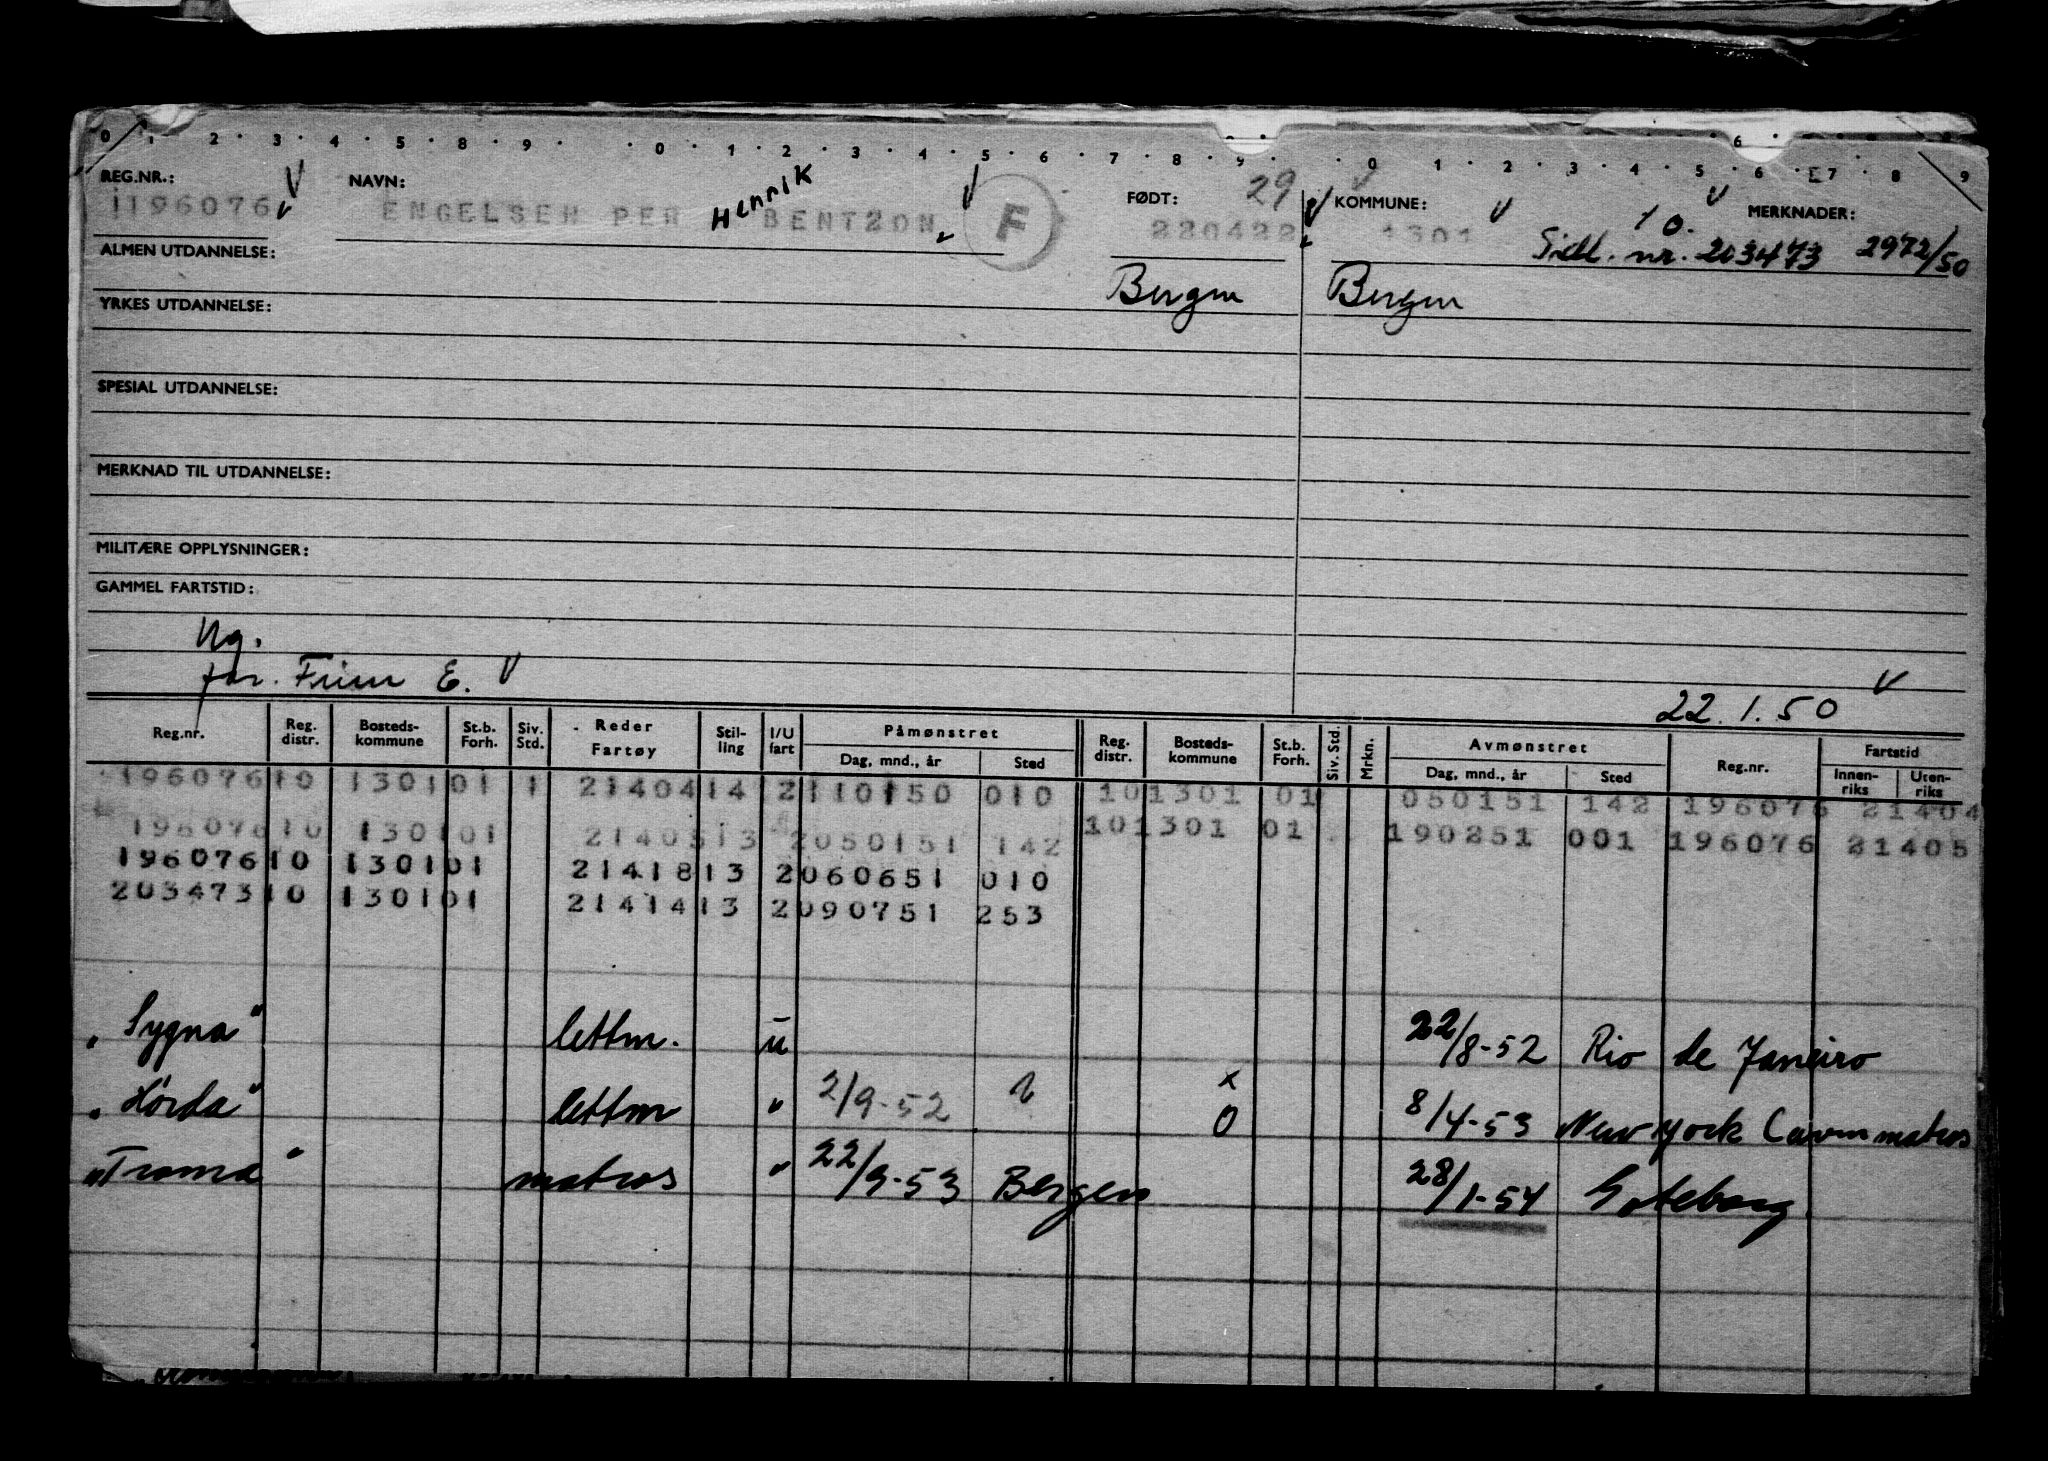 0 1 2 3 4 5 8 9 0 1 2 3 4 5 6 7 8 9 0 1 2 3 4 5 6 7 8 9
REG.NR.: NAVN: Henrik FØDT: 29 KOMMUNE: 10. MERKNADER:
196076 ENGELSEN PER BENTZON F 220422 1301 Sidl. nr. 203473 2972/50
ALMEN UTDANNELSE: Bergen Bergen
YRKES UTDANNELSE:
SPESIAL UTDANNELSE:
MERKNAD TIL UTDANNELSE:
MILITÆRE OPPLYSNINGER:
GAMMEL FARTSTID:
Ug.
far. E. 22.1.50
Reg.nr. Reg. distr. Bosteds-kommune St.b. Forh. Siv. Std. Reder Fartøy Stil-ling I/U fart Påmønstret Dag, mnd., år Sted Reg. distr. Bosteds-kommune St.b. Forh. Siv. Std. Mrkn. Avmønstret Dag, mnd., år Sted Reg.nr. Fartstid Innen-riks Uten-riks
196076 10 1301 01 1 21404 14 2 110150 010 10 1301 01 050151 142 196076 21404
196076 10 1301 01 21405 13 2 050151 142 10 1301 01 190251 001 196076 21405
196076 10 1301 01 21418 13 2 060651 010
203473 10 1301 01 21414 13 2 090751 253
"Sygna" lettm. u 22/8-52 Rio de Janeiro
"Hörda" lettm " 2/9-52 x 0 8/4-53 New York matros
"Troma" matros " 22/9-53 Bergen 28/1-54 Goteborg